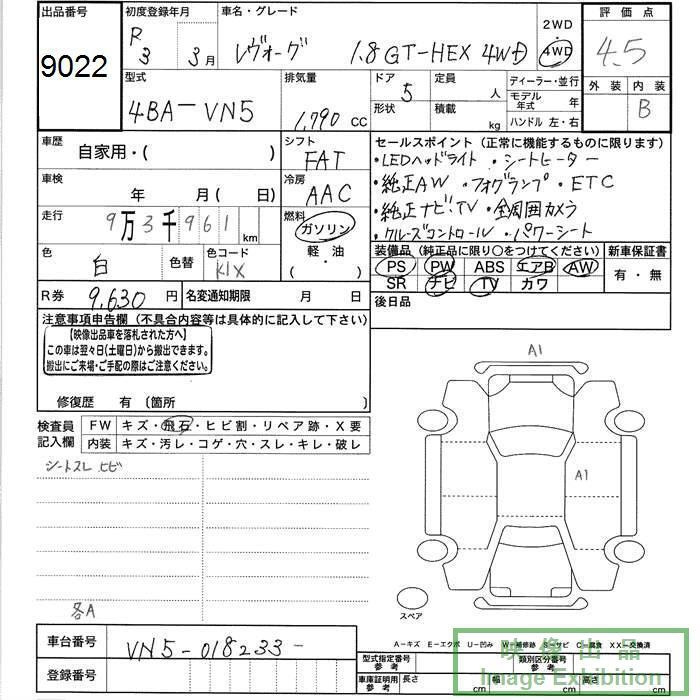 出品番号 初度登録年月 車名・グレード 2WD 評価点
9022 R3 3月 レヴォーグ 1.8 GT-HEX 4WD 4WD 4.5
型式 排気量 ドア 定員 ディーラー・並行 外装 内装
4BA-VN5 1,790 CC 5 人 モデル年式 年 B
形状 積載 kg ハンドル 左・右
車歴 自家用・( ) シフト FAT セールスポイント (正常に機能するものに限ります)
・LEDヘッドライト ・シートヒーター
車検 年 月 ( 日) 冷房 AAC ・純正AW ・フォグランプ ・ETC
走行 9万3千961km 燃料 ガソリン ・純正ナビTV ・全周囲カメラ
軽油 ・クルーズコントロール ・パワーシート
色 白 色替 色コード K1X ( ・ ) 装備品 (純正品に限り○をつけてください) 新車保証書
PS PW ABS エアB AW 有・無
SR ナビ TV カワ
R券 9,630 円 名変通知期限 月 日 後日品
注意事項申告欄 (不具合内容等は具体的に記入して下さい)
【映像出品車を落札された方へ】
この車は翌々日(土曜日)から搬出できます。
搬出にご来場・ご手配の際はご注意ください。
修復歴 有 〔箇所 〕
A1
A1
検査員 FW キズ・飛石・ヒビ割・リペア跡・X要
記入欄 内装 キズ・汚レ・コゲ・穴・スレ・キレ・破レ
シートスレ ヒビ
各A
スペア
車台番号 VN5-018233-
登録番号
A-キズ E-エクボ U-凹み W-補修跡 S-サビ C-腐食 XX-交換済
型式指定番号 参考 類別区分番号 参考
車庫証明用 参考 長さ cm 幅 cm 高さ cm
映像出品
Image Exhibition